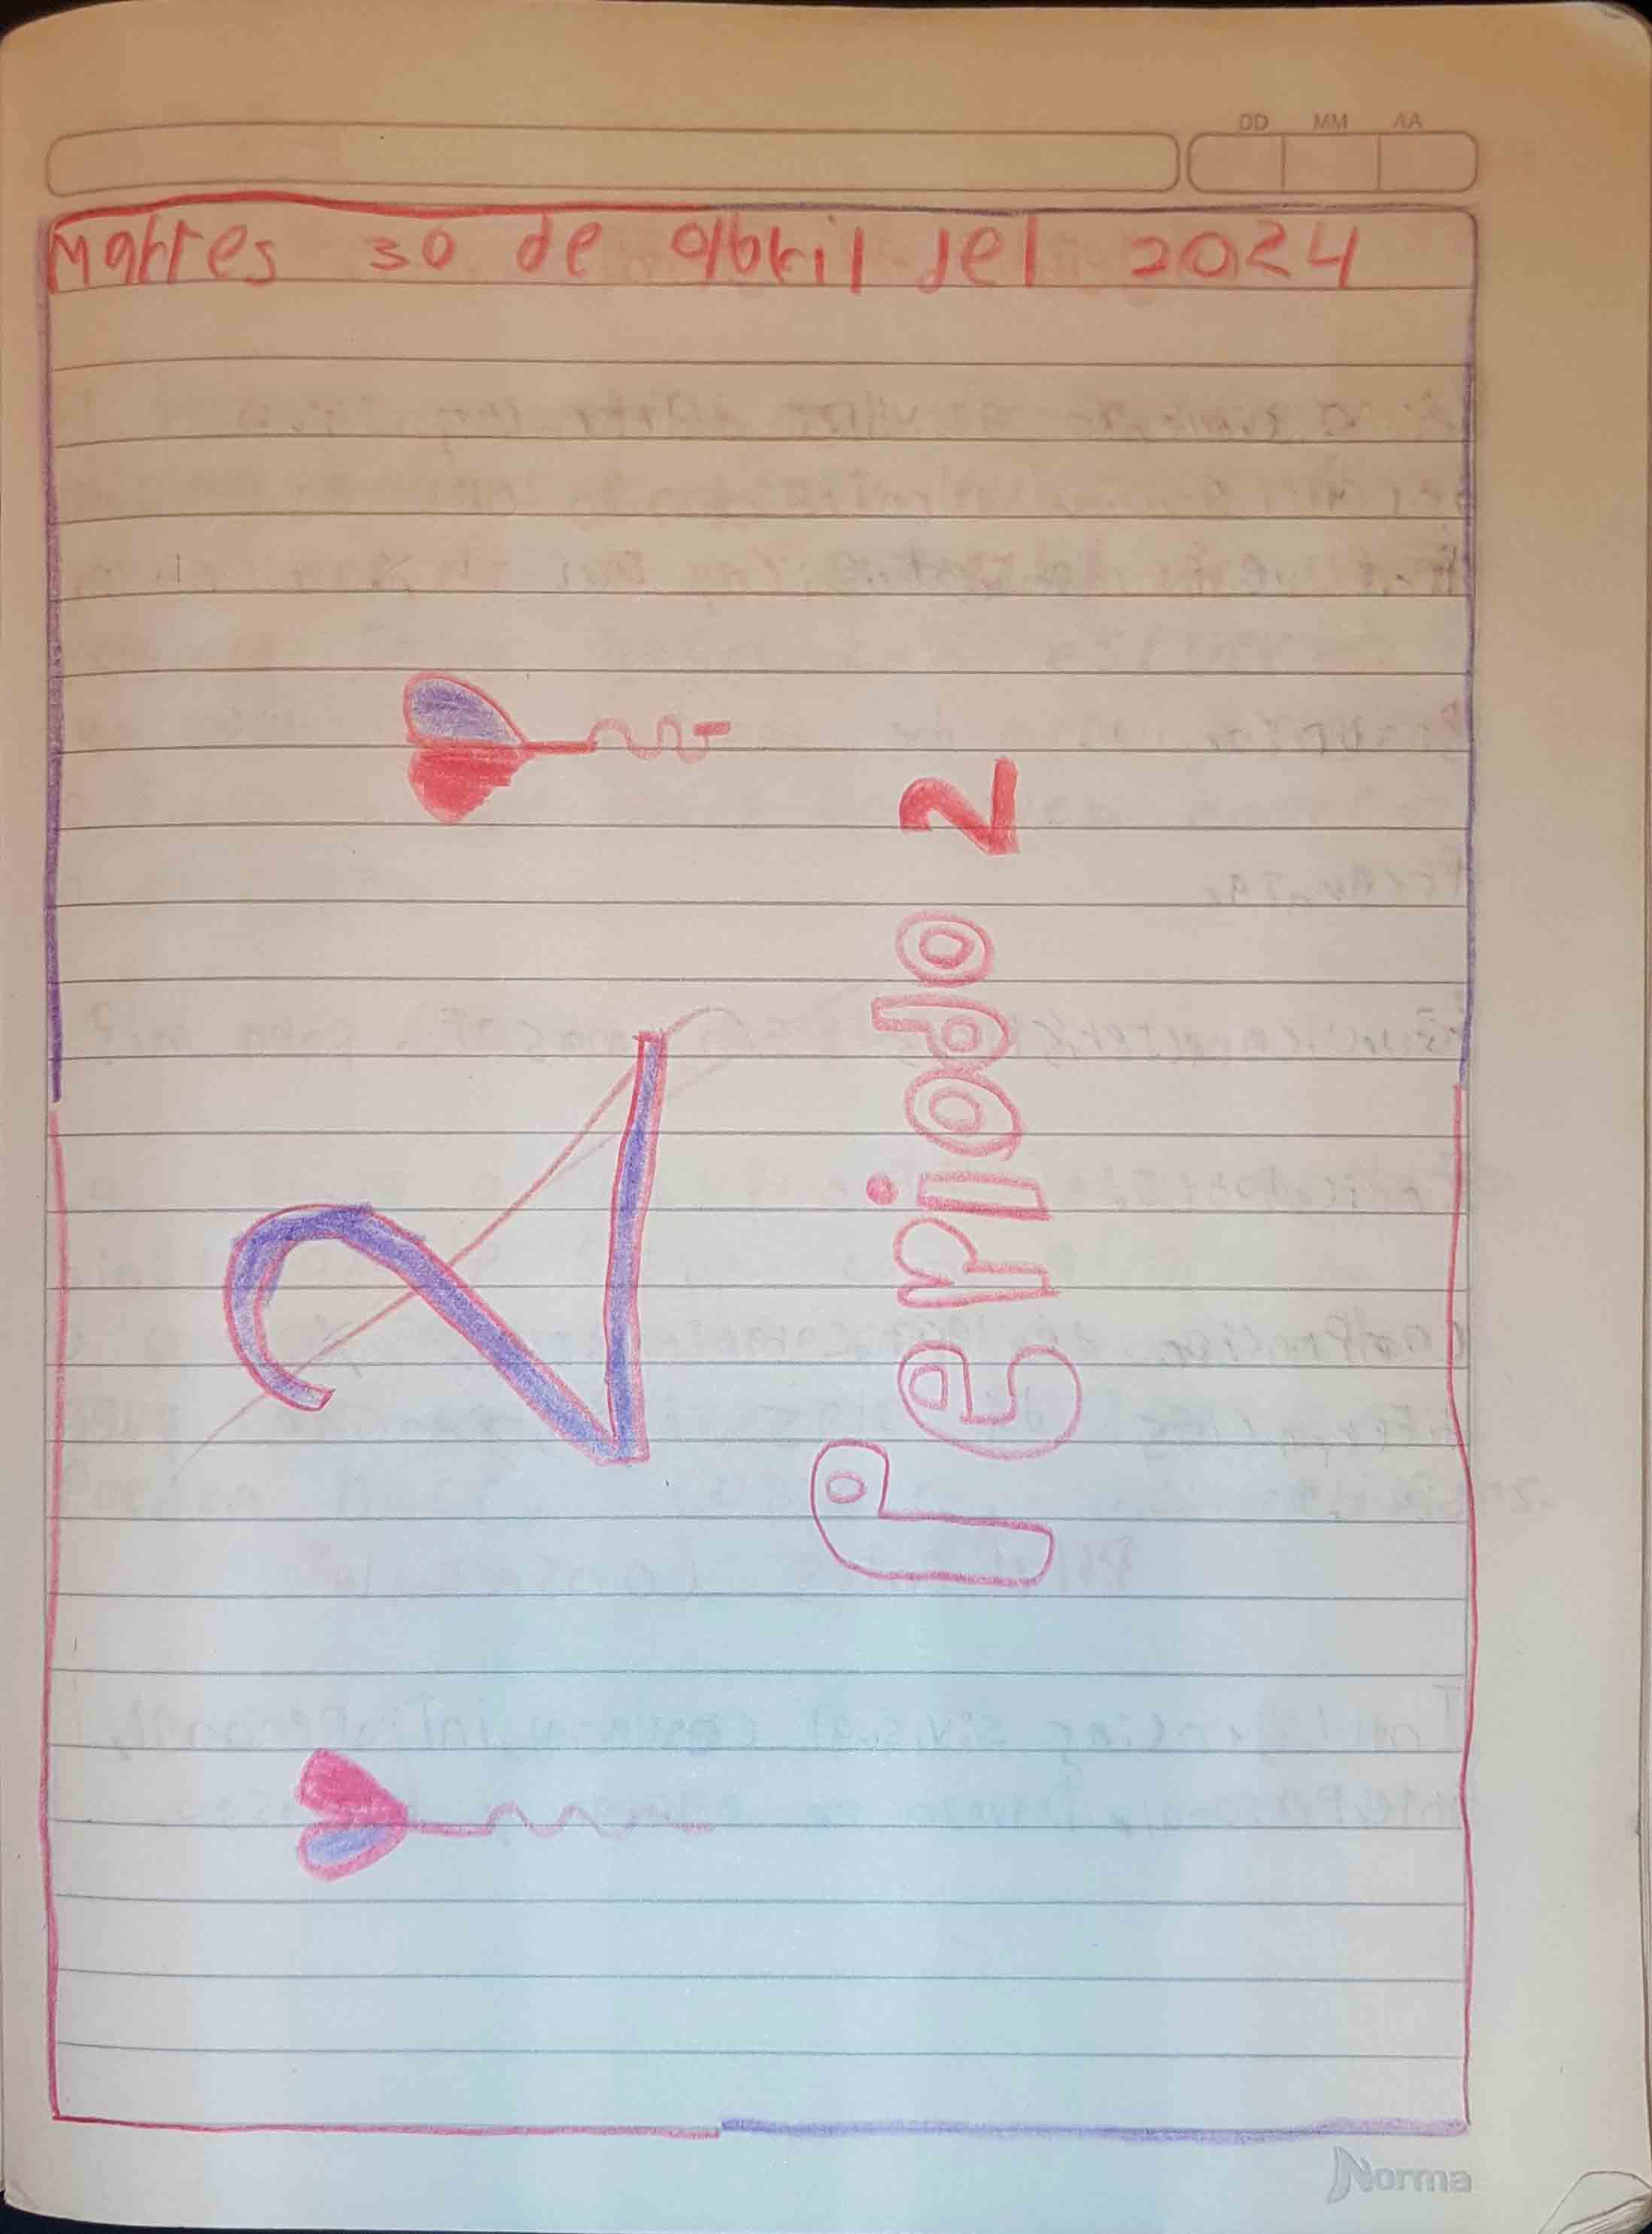 DD MM AA
Martes 30 de abril del 2024
2
Periodo 2
Norma